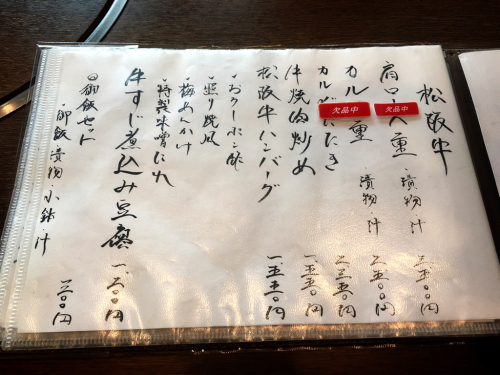 松阪牛
肩ロ
欠品中
重 漬物・汁 二、五〇〇円
カル
欠品中
重 漬物・汁 二、五〇〇円
カルビたたき
牛焼肉炒め 一、五五〇円
松阪牛ハンバーグ 一、五五〇円
・おろしポン酢
・照り焼風
・梅あんかけ
・特製味噌だれ
牛すじ煮込み豆腐 一、二〇〇円
◎御飯セット 三〇〇円
・御飯・漬物・小鉢・汁